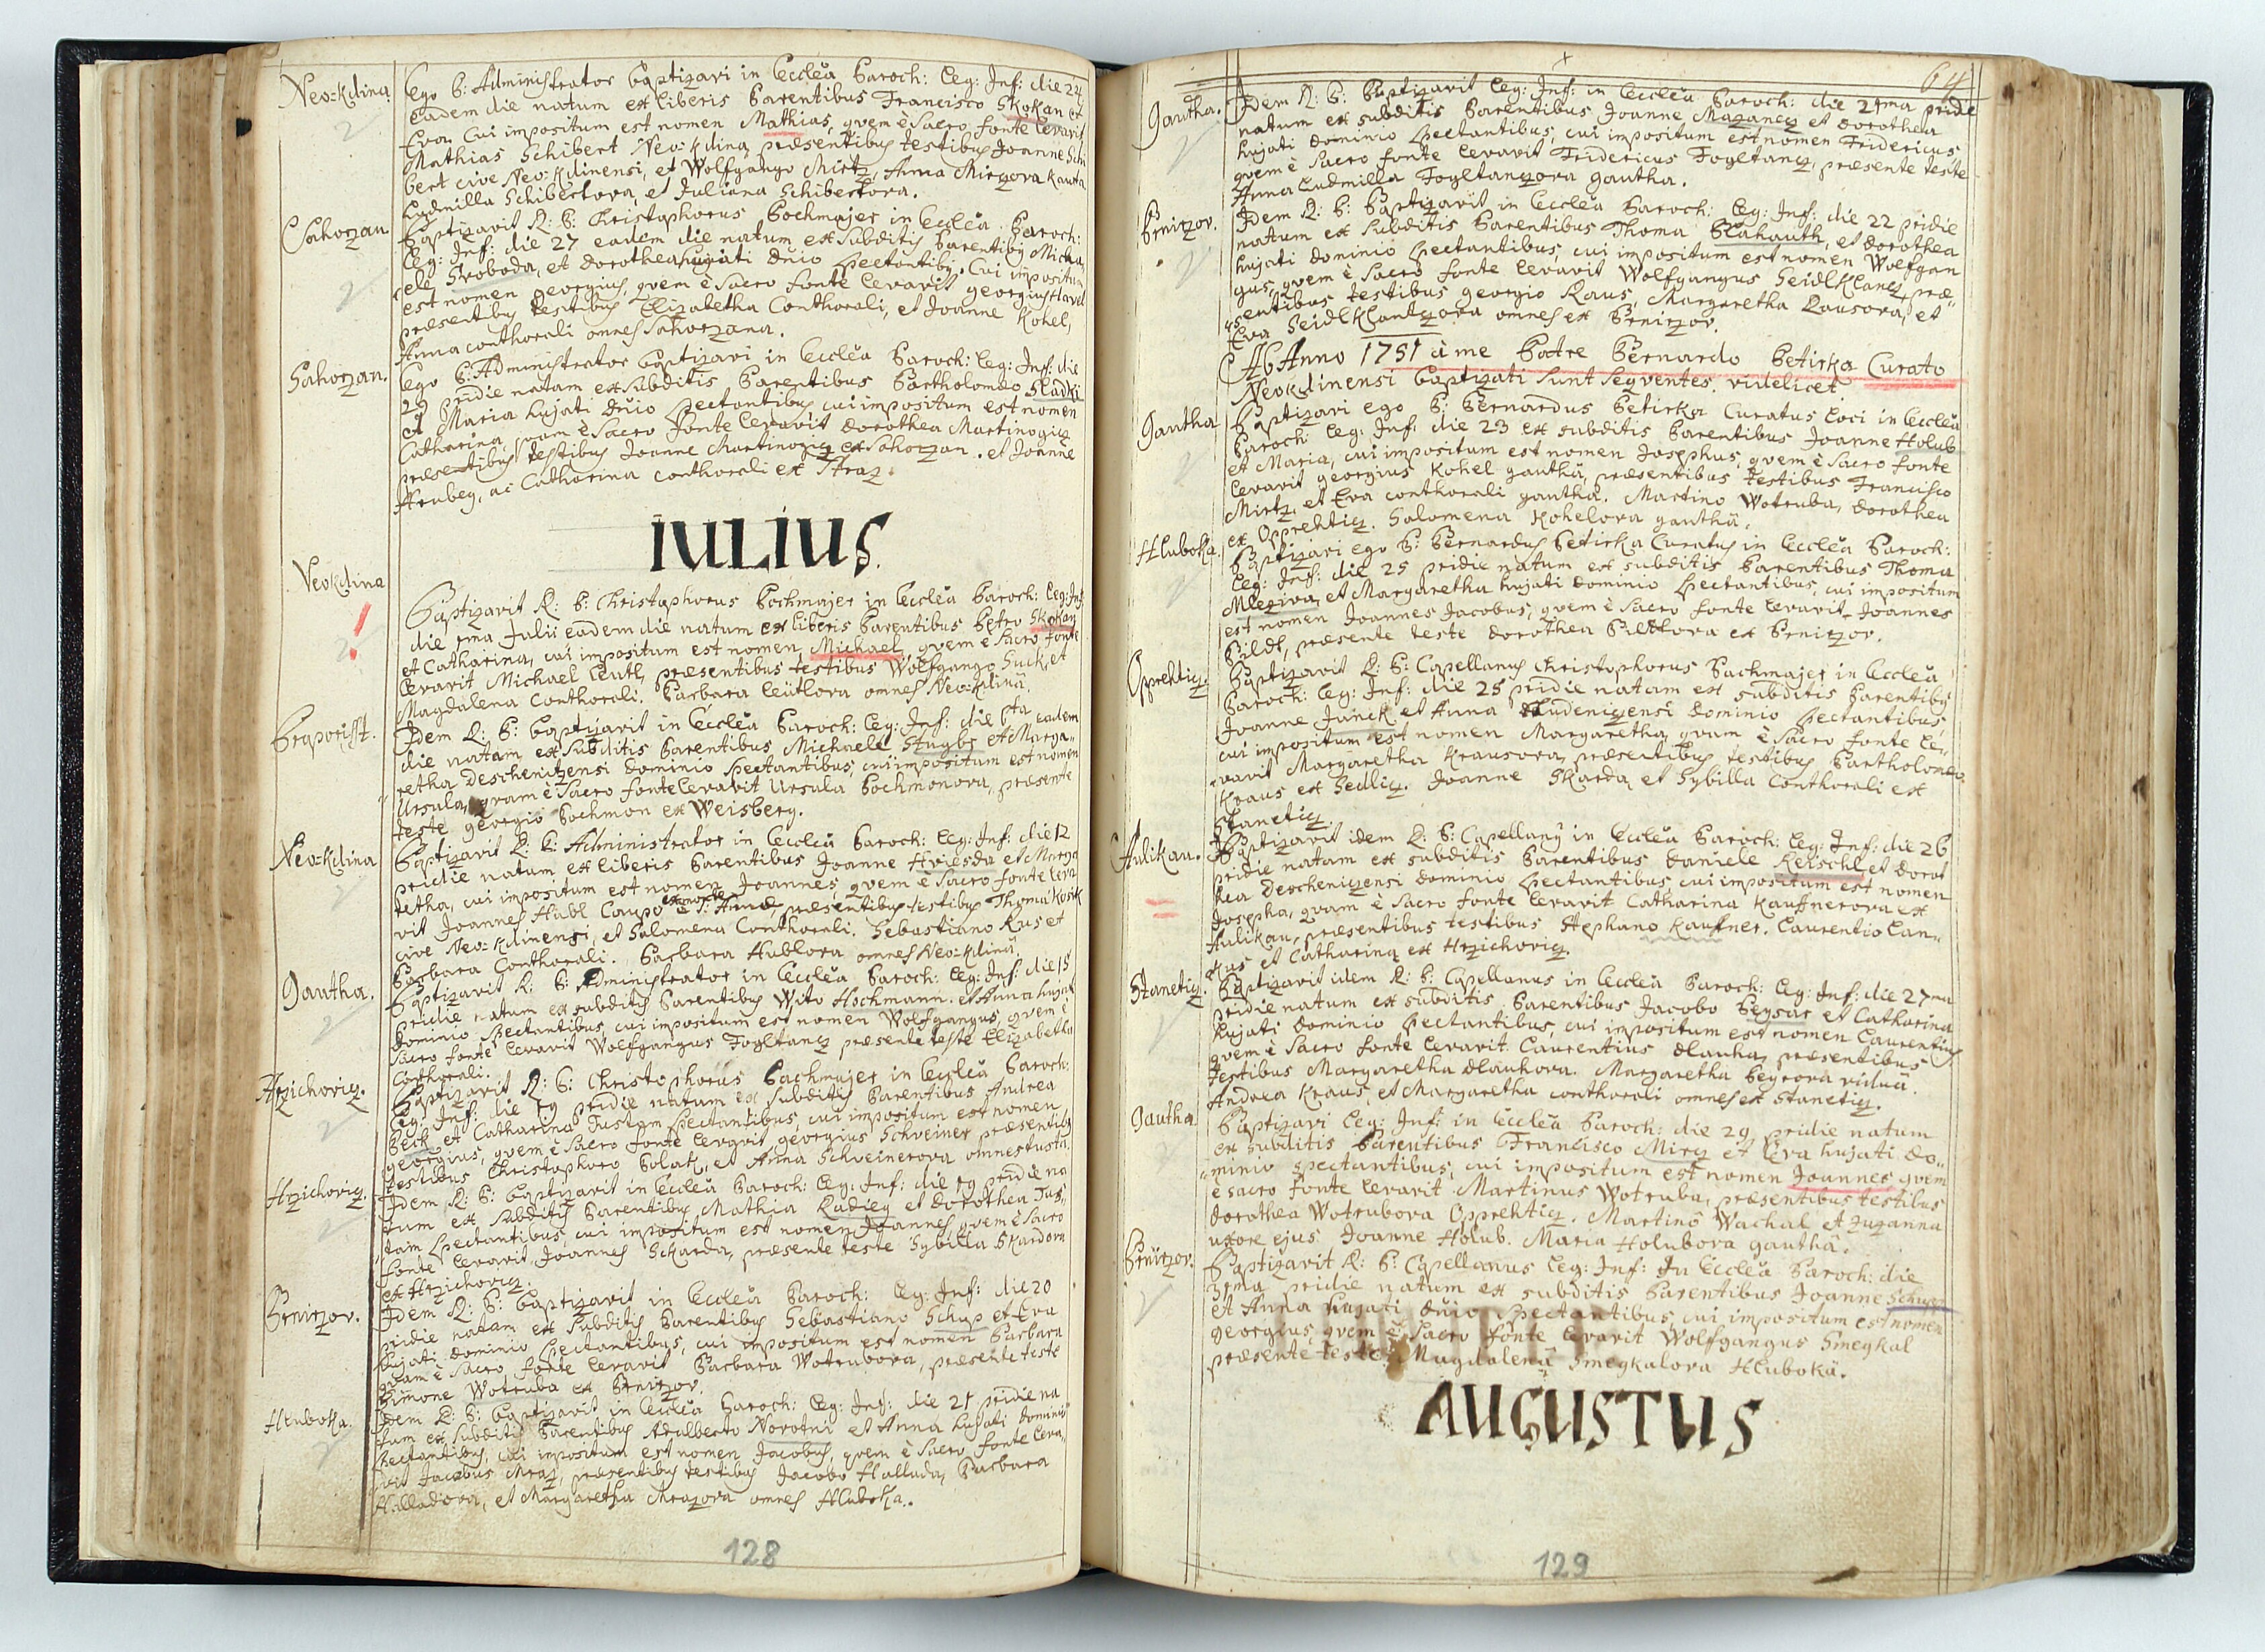 Neo=Kdina
Ego P: Administrator baptizavi in Ecclêa Paroch: Leg: Inf: die 24
eadem die natum ex liberis Parentibus Francisco Skokan et
Eva, cui impositum est nomen Mathias, qvem è Sacro fonte levavit
Mathias Schibert Neo=Kdina, præsentibus testibus Joanne Schi
bert cive Neo=Kdinensi, et Wolfgango Mirtz, Anna Mirzova Kauta
Ludmilla Schibertova, et Juliana Schibertova.
Sahorzan
Baptizavit R: P: Christophorus Pochmajer in Ecclêa Paroch:
Leg: Inf: die 27 eadem die natum ex Subditis Parentibus Micha
ele Svoboda, et Dorothea hujati Dnio Spectantibus. Cui impositum
est nomen Georgius, qvem è Sacro fonte levavit Georgius Havel
præsentibus testibus Elizabetha Conthorali, et Joanne Kohel,
Anna conthorali omnes Sahorzana.
Sahorzan.
Ego P: Administrator baptizavi in Ecclêa Paroch: Leg: Inf: die
29 pridie natam ex Subditis Parentibus Bartholomeo Sladkÿ
et Maria hujati Dnio Spectantibus cui impositum est nomen
Catharina, qvam è Sacro fonte levavit Dorothea Martinogicz
præsentibus testibus Joanne Martinogicz ex Sahorzan. et Joanne
Hrubey, ac Catharina conthorali ex Straz.
IULIUS.
Neokdina
Baptizavit R: P: Christophorus Pochmajer in Ecclêa Paroch: Leg: Inf:
die 1ma Julii eadem die natum ex liberis Parentibus Petro Skokan
et Catharina, cui impositum est nomen Michael, qvem è Sacro fonte
levavit Michael Leutl, præsentibus testibus Wolfgango Suck, et
Magdalena Conthorali. Barbara Leütlova omnes Neo=Kdinâ.
Idem R: P: baptizavit in Ecclêa Paroch: Leg: Inf: die eadem
die natam ex Subditis Parentibus Michaele et Marga=
retha Deschenitzensi Dominio Spectantibus, cui impositum est nomen
Ursula, qvam è Sacro fonte levavit Ursula Bochmonova, præsente
teste Georgio Bochmon ex Weisberg.
Neo=Kdina
Baptizavit R: P: Administrator in Ecclêa Paroch: Leg: Inf: die 12
pridie natum ex liberis Parentibus Joanne Hviesda et Marga
retha, cui impositum est nomen Joannes, qvem è Sacro fonte leva
vit Joannes Hubl Caupo è S: Annæ præsentibus testibus Thoma Kosik
cive Neo=Kdinensi, et Salomena Conthorali. Sebastiano Rus et
Barbara Conthorali. Barbara Hublova omnes Neo=Kdinâ.
Gautha.
Baptizavit R: P: Administrator in Ecclêa Paroch: Leg: Inf: die 15
pridie natum ex subditis Parentibus Wito Hochmann. et Anna hujati
Dominio Spectantibus, cui impositum est nomen Wolfgangus, qvem è
Sacro fonte levavit Wolfgangus Fogltancz præsente teste Elizabetha
Conthorali.
Hrzichovicz.
Baptizavit R: P: Christophorus Bachmajer in Ecclêa Paroch:
Leg: Inf: die 19 pridie natum ex Subditis Parentibus Andrea
Beck et Catharina Tustam Spectantibus, cui impositum est nomen
Georgius, qvem è Sacro fonte levavit Georgius Schreiner præsentibus
testibus Christophoro Polak, et Anna Schreinerova omnes tusta.
Hrzichovicz.
Idem R: P: baptizavit in Ecclêa Paroch: Leg: Inf: die 19 pridie na
tum ex Subditis Parentibus Mathia Radiey et Dorothea Tus=
tam Spectantibus, cui impositum est nomen Joannes, qvem è Sacro
fonte levavit Joannes Skarda, præsente teste Sybilla Skardova
ex Hrzichovicz.
Prnirzov.
Idem R: P: baptizavit in Ecclêa Paroch: Leg: Inf: die 20
pridie natam ex Subditis Parentibus Sebastiano Schup et Eva
hujati Dominio Spectantibus, cui impositum est nomen Barbara
qvam è Sacro fonte levavit Barbara Wotrubova, præsente teste
Simone Wotruba ex Prnirzov.
Hluboka.
Idem R: P: baptizavit in Ecclêa Paroch: Leg: Inf: die 21 pridie na
tum ex Subditis Parentibus Adalberto Novotni et Anna hujati Dominio
Spectantibus, cui impositum est nomen Jacobus, qvem è Sacro fonte leva=
vit Jacobus Mraz, præsentibus testibus Jacobo Hallada, Barbara
Halladova, et Margaretha Mrazova omnes Hluboka.
128
64
Gautha.
Idem R: P: Baptizavit Leg: Inf: in Ecclêa Paroch: die 21ma pridie
natum ex subditis Parentibus Joanne Mazancz et Dorothea
hujati Dominio Spectantibus, cui impositum est nomen Fridericus
qvem è Sacro fonte levavit Fridericus Fogltancz, præsente teste
Anna Ludmilla Fogltanzova Gautha.
Prnirzov.
Idem R: P: Baptizavit in Ecclêa Paroch: Leg: Inf: die 22 pridie
natum ex Subditis Parentibus Thoma Blahauth, et Dorothea
hujati Dominio Spectantibus, cui impositum est nomen Wolfgan
gus, qvem è Sacro fonte levavit Wolfgangus Seidlklancz, præ=
sentibus testibus Georgio Raus, Margaretha Rausova, et
Eva Seidlklantzova omnes ex Prnirzov.
Ab Anno 1751 à me Patre Bernardo Petirka Curato
Neokdinensi baptizati sunt seqventes. videlicet
Gautha
Baptizavi ego P: Bernardus Petirka Curatus loci in Ecclêa
Paroch: Leg: Inf: die 23 ex subditis Parentibus Joanne Holub
et Maria, cui impositum est nomen Josephus, qvem è Sacro fonte
levavit Georgius Kohel Gauthâ, præsentibus testibus Francisco
Mirtz, et Eva conthorali Gauthâ. Martino Wotruba, Dorothea
ex Opprehticz. Salomena Kohelova Gauthâ.
Hluboka.
Baptizavi ego P: Bernardus Petirka Curatus in Ecclêa Paroch:
Leg: Inf: die 25 pridie natum ex subditis Parentibus Thoma
Mleziva, et Margaretha hujati Dominio Spectantibus, cui impositum
est nomen Joannes Jacobus, qvem è Sacro fonte levavit Joannes
Bildt, præsente teste Dorothea Bildtova ex Prnirzov.
Opprehticz.
Baptizavit R: P: Capellanus Christophorus Bachmajer in Ecclêa
Paroch: Leg: Inf: die 25 pridie natam ex subditis Parentibus
Joanne Janek et Anna Kudenizensi Dominio Spectantibus,
cui impositum est nomen Margaretha, qvam è Sacro fonte le=
vavit Margaretha Krausova, præsentibus testibus Bartholomeo
Kraus ex Sedlicz. Joanne Skarda, et Sybilla Conthorali ex
Staneticz.
Aulikau.
Baptizavit idem R: P: Capellanus in Ecclêa Paroch: Leg: Inf: die 26
pridie natam ex subditis Parentibus Daniele Reischl et Dorot
hea Deschenizensi Dominio Spectantibus, cui impositum est nomen
Josepha, qvam è Sacro fonte levavit Catharina Kauffnerova ex
Aulikau, præsentibus testibus Stephano Kauffner. Laurentio Lan=
kus et Catharina ex Hrzichovicz.
Staneticz.
Baptizavit idem R: P: Capellanus in Ecclêa Paroch: Leg: Inf: die 27ma
pridie natum ex subditis Parentibus Jacobo Beysar et Catharina
hujati Dominio Spectantibus, cui impositum est nomen Laurentius,
qvem è Sacro fonte levavit Laurentius Dlauha, præsentibus
testibus Margaretha Dlauhova. Margaretha Beyrova viduâ.
Andrea Kraus, et Margaretha conthorali omnes ex Stanetiz.
Gautha
Baptizavi Leg: Inf: in Ecclêa Paroch: die 29 pridie natum
ex subditis Parentibus Francisco Mircz et Eva hujati Do=
minio spectantibus, cui impositum est nomen Joannes, qvem
è sacro fonte levavit Martinus Wotruba, præsentibus testibus
Dorothea Wotrubova Opprehticz. Martinô Wachal et Zuzanna
uxore ejus Joanne Holub. Maria Holubova Gauthâ.
Prnirzov.
Baptizavit R: P: Capellanus Leg: Inf: In Ecclêa Paroch: die
31ma pridie natum ex subditis Parentibus Joanne Schupp
et Anna hujati Dnio Spectantibus, cui impositum est nomen
Georgius, qvem è Sacro fonte levavit Wolfgangus Smegkal
præsente teste Magdalenâ Smegkalova Hlubokâ.
AUGUSTUS
129